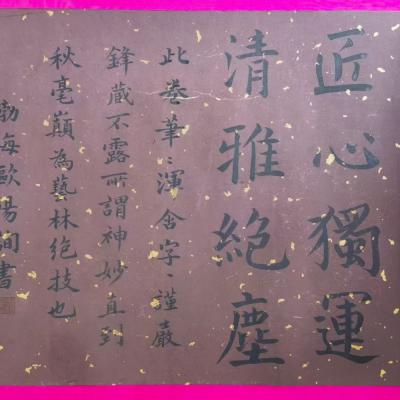 匠心獨運
清雅絕塵
此卷筆〻渾含字〻謹嚴
鋒藏不露所謂神妙直到
秋毫巔為藝林絕技也
渤海歐陽詢書